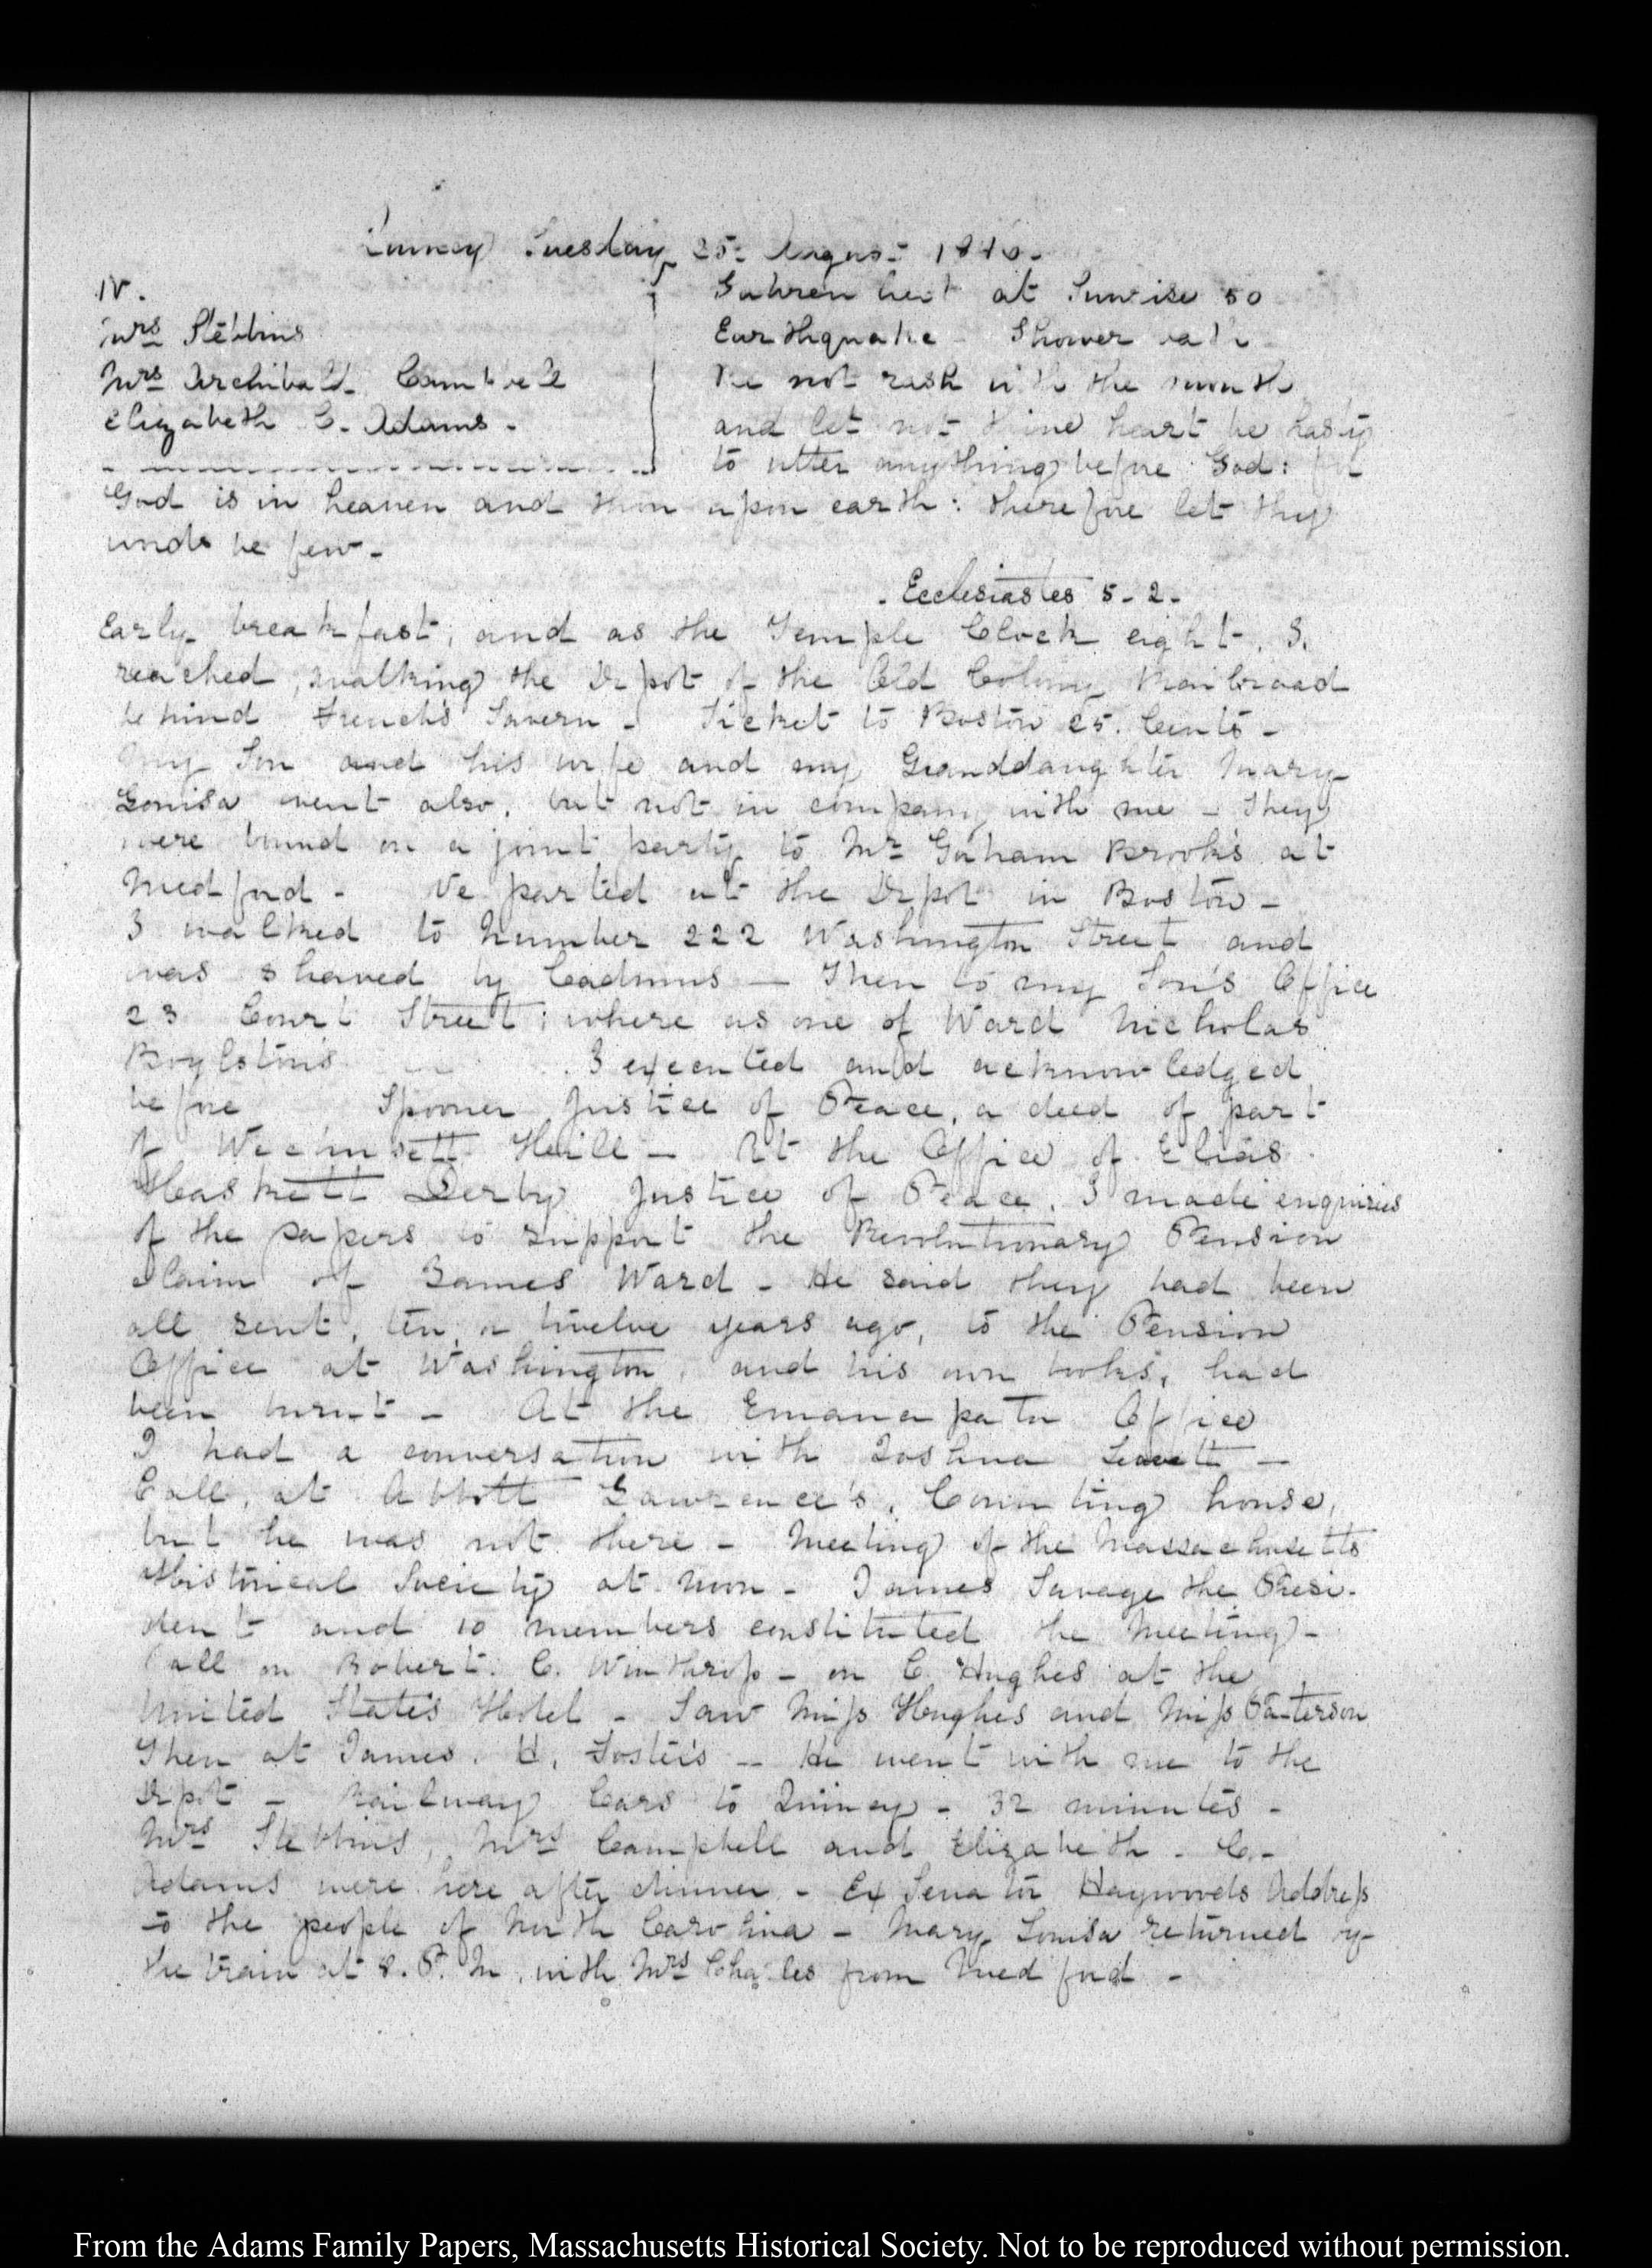 Quincy Tuesday 25. August 1846.
IV.
Mrs Stebbins
Mrs Archibald Campbell
Elizabeth C. Adams.
Fahrenheit at Sunrise 50
Earthquake Shower bath
Be not rash with the mouth
and let not thine heart be hasty
to utter anything before God: for
God is in heaven and thou upon earth: therefore let thy
words be few.
Ecclesiastes 5. 2.
Early breakfast, and as the Temple Clock eight, I.
reached, walking the Depot of the Old Colony Railroad
behind French's Tavern - Ticket to Boston 25. Cents -
My Son and his wife and my Granddaughter Mary
Louisa went also, but not in company with me - They
were bound on a joint party to Mr Gorham Brooks's at
Medford - We parted at the Depot in Boston -
I walked to Number 222 Washington Street and
was shaved by Cadmus — Then to my Son's Office
23 Court Street; where as one of Ward Nicholas
Boylston's I executed and acknowledged
before Spooner Justice of Peace, a deed of part
of Hill — At the Office of Elias
Haskett Derby Justice of Peace, I made enquiries
of the papers to support the Revolutionary Pension
Claim of James Ward - He said they had been
all sent, ten or twelve years ago, to the Pension
Office at Washington, and his own books, had
been burnt - At the Emancipator Office
I had a conversation with Joshua Leavitt —
Call, at Abbott Lawrence's, Counting house,
but he was not there - Meeting of the Massachusetts
Historical Society at noon - James Savage the Presi-
dent and 10 members constituted the Meeting -
Call on Robert. C. Winthrop - on C. Hughes at the
United States Hotel - Saw Miss Hughes and Miss Patterson
Then at James. H. Foster's — He went with me to the
Depot - Railway Cars to Quincy - 32 minutes -
Mrs Stebbins, Mrs Campbell and Elizabeth - C -
Adams were here after dinner - Ex Senator Haywoods Address
to the people of North Carolina - Mary Louisa returned by
the train at 8. P. M. with Mrs Charles from Medford -
From the Adams Family Papers, Massachusetts Historical Society. Not to be reproduced without permission.